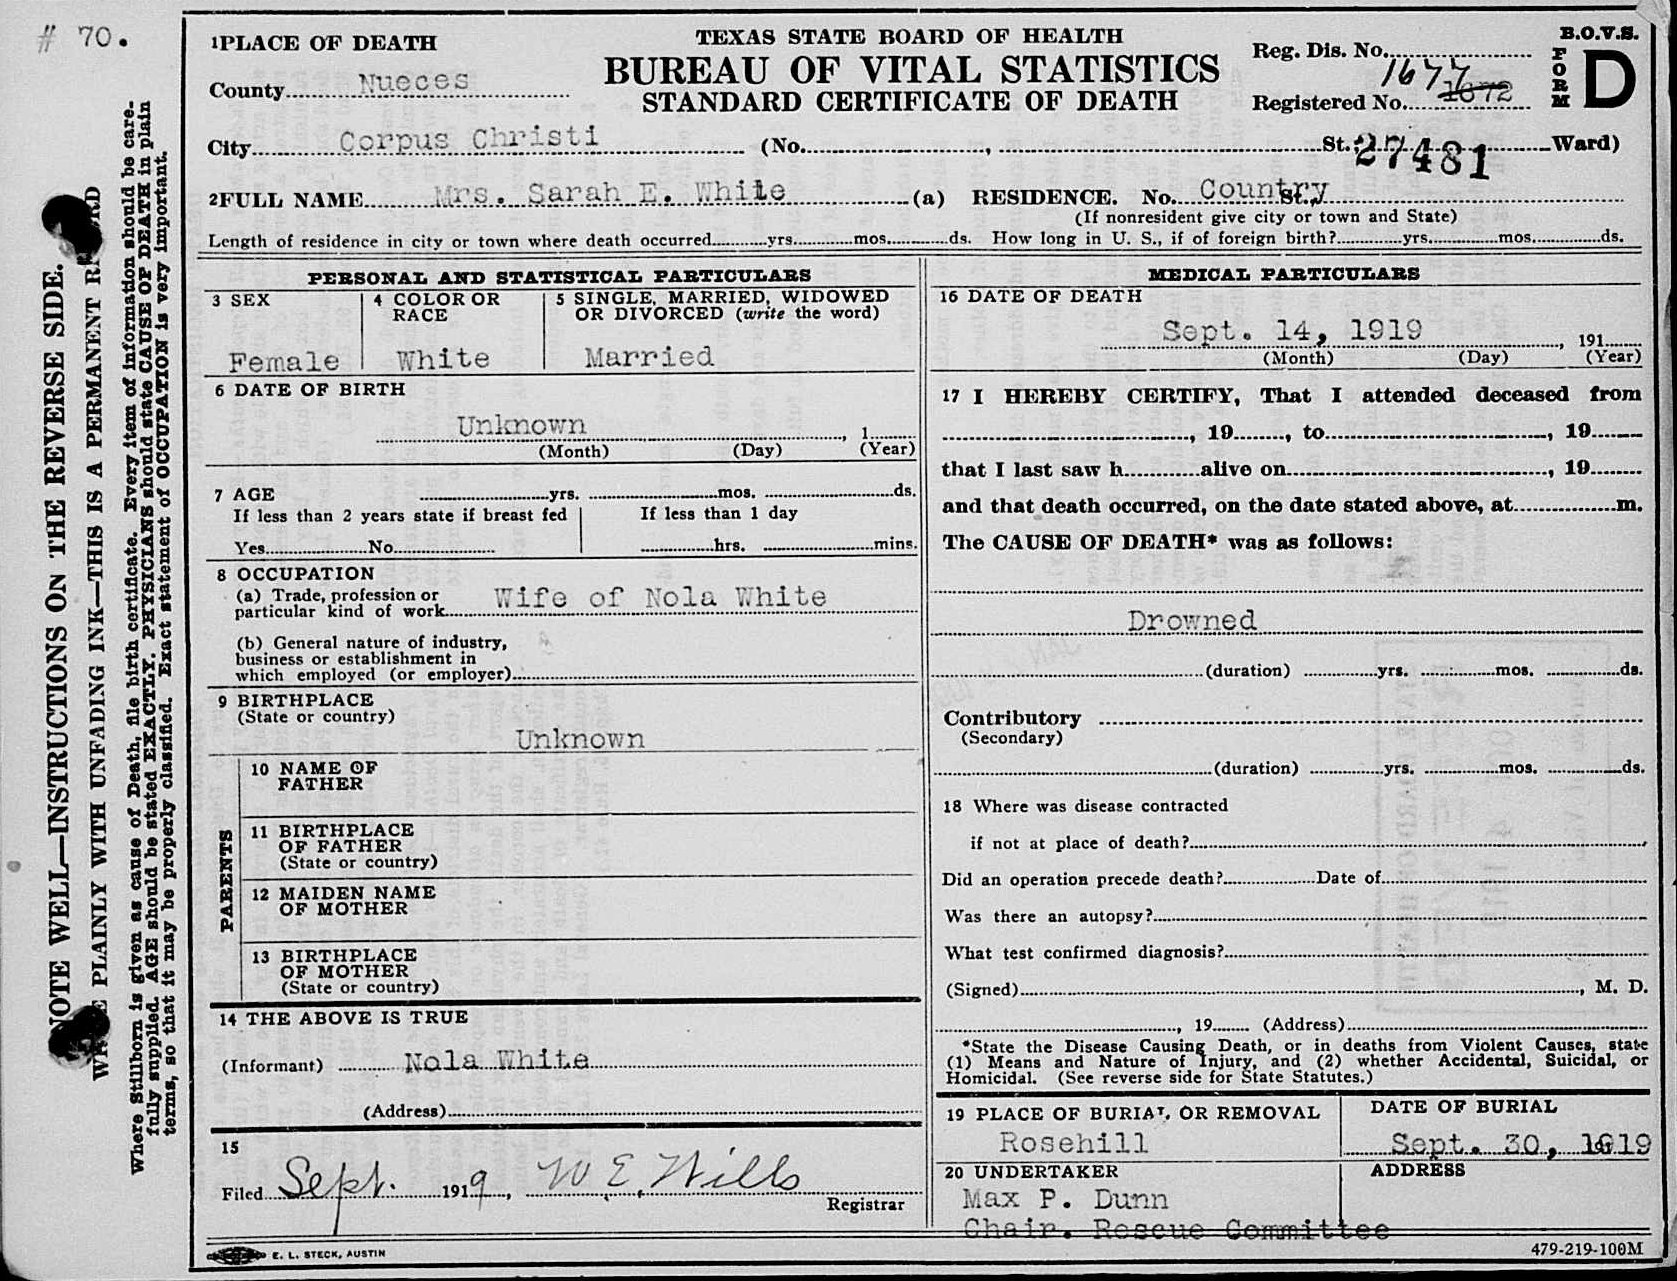 # 70.
TEXAS STATE BOARD OF HEALTH
BUREAU OF VITAL STATISTICS
STANDARD CERTIFICATE OF DEATH
B.O.V.S.
FORM D
Reg. Dis. No.
1677
Registered No. 1672
27481
1 PLACE OF DEATH
County Nueces
City Corpus Christi (No. , St.; Ward)
2 FULL NAME Mrs. Sarah E. White (a) RESIDENCE. No. Country St.,
(If nonresident give city or town and State)
Length of residence in city or town where death occurred yrs. mos. ds. How long in U. S., if of foreign birth? yrs. mos. ds.
PERSONAL AND STATISTICAL PARTICULARS
3 SEX
Female
4 COLOR OR RACE
White
5 SINGLE, MARRIED, WIDOWED
OR DIVORCED (write the word)
Married
6 DATE OF BIRTH
Unknown , 1
(Month) (Day) (Year)
7 AGE yrs. mos. ds.
If less than 2 years state if breast fed If less than 1 day
Yes No hrs. mins.
8 OCCUPATION
(a) Trade, profession or
particular kind of work Wife of Nola White
(b) General nature of industry,
business or establishment in
which employed (or employer)
9 BIRTHPLACE
(State or country)
Unknown
PARENTS
10 NAME OF
FATHER
11 BIRTHPLACE
OF FATHER
(State or country)
12 MAIDEN NAME
OF MOTHER
13 BIRTHPLACE
OF MOTHER
(State or country)
14 THE ABOVE IS TRUE
(Informant) Nola White
(Address)
15
Filed Sept. 1919, W E Wills
Registrar
MEDICAL PARTICULARS
16 DATE OF DEATH
Sept. 14, 1919 , 191
(Month) (Day) (Year)
17 I HEREBY CERTIFY, That I attended deceased from
, 19 , to , 19
that I last saw h alive on , 19
and that death occurred, on the date stated above, at m.
The CAUSE OF DEATH* was as follows:
Drowned
(duration) yrs. mos. ds.
Contributory
(Secondary)
(duration) yrs. mos. ds.
18 Where was disease contracted
if not at place of death?
Did an operation precede death? Date of
Was there an autopsy?
What test confirmed diagnosis?
(Signed) , M. D.
, 19 (Address)
*State the Disease Causing Death, or in deaths from Violent Causes, state
(1) Means and Nature of Injury, and (2) whether Accidental, Suicidal, or
Homicidal. (See reverse side for State Statutes.)
19 PLACE OF BURIAL OR REMOVAL
Rosehill
DATE OF BURIAL
Sept. 30, 1919
20 UNDERTAKER
Max P. Dunn
Chair. Rescue Committee
ADDRESS
E. L. STECK, AUSTIN
479-219-100M
NOTE WELL—INSTRUCTIONS ON THE REVERSE SIDE.
PLAINLY WITH UNFADING INK—THIS IS A PERMANENT
Where Stillborn is given as cause of Death, file birth certificate. Every item of information should be care-
fully supplied. AGE should be stated EXACTLY. PHYSICIANS should state CAUSE OF DEATH in plain
terms, so that it may be properly classified. Exact statement of OCCUPATION is very important.